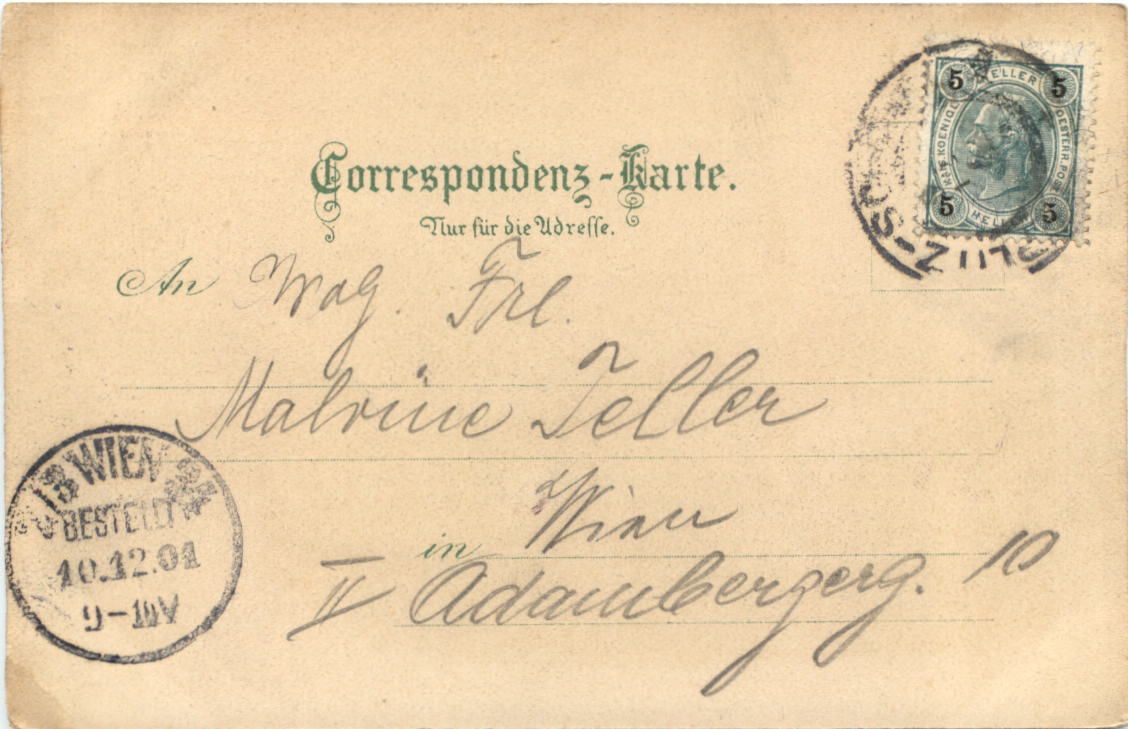 Correspondenz-Karte.
Nur für die Adresse.
5 HELLER 5
KAIS. KOENIGL. OESTERR. POST
5 HELLER 5
An Frl.
Malvine Teller
in Wien
II Adambergerg. 10
WIEN
BESTELLT
10.12.01
9-10V